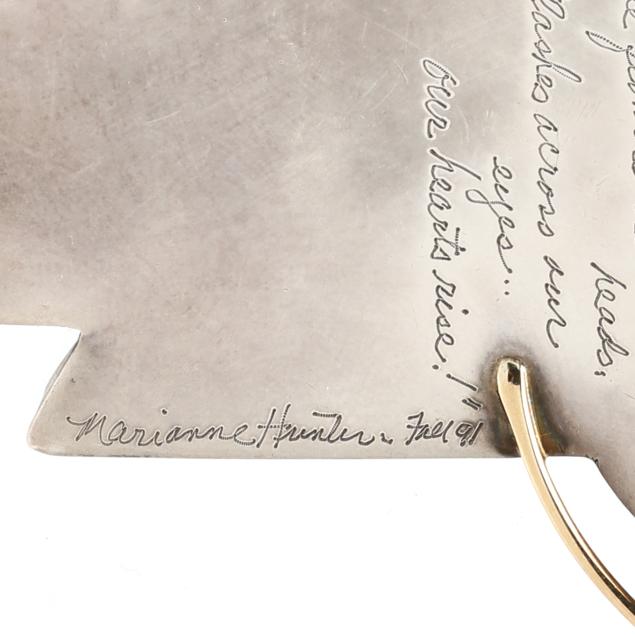 heads.
lashes across our
eyes...
our hearts rise!"
Marianne Hunter Fall 91